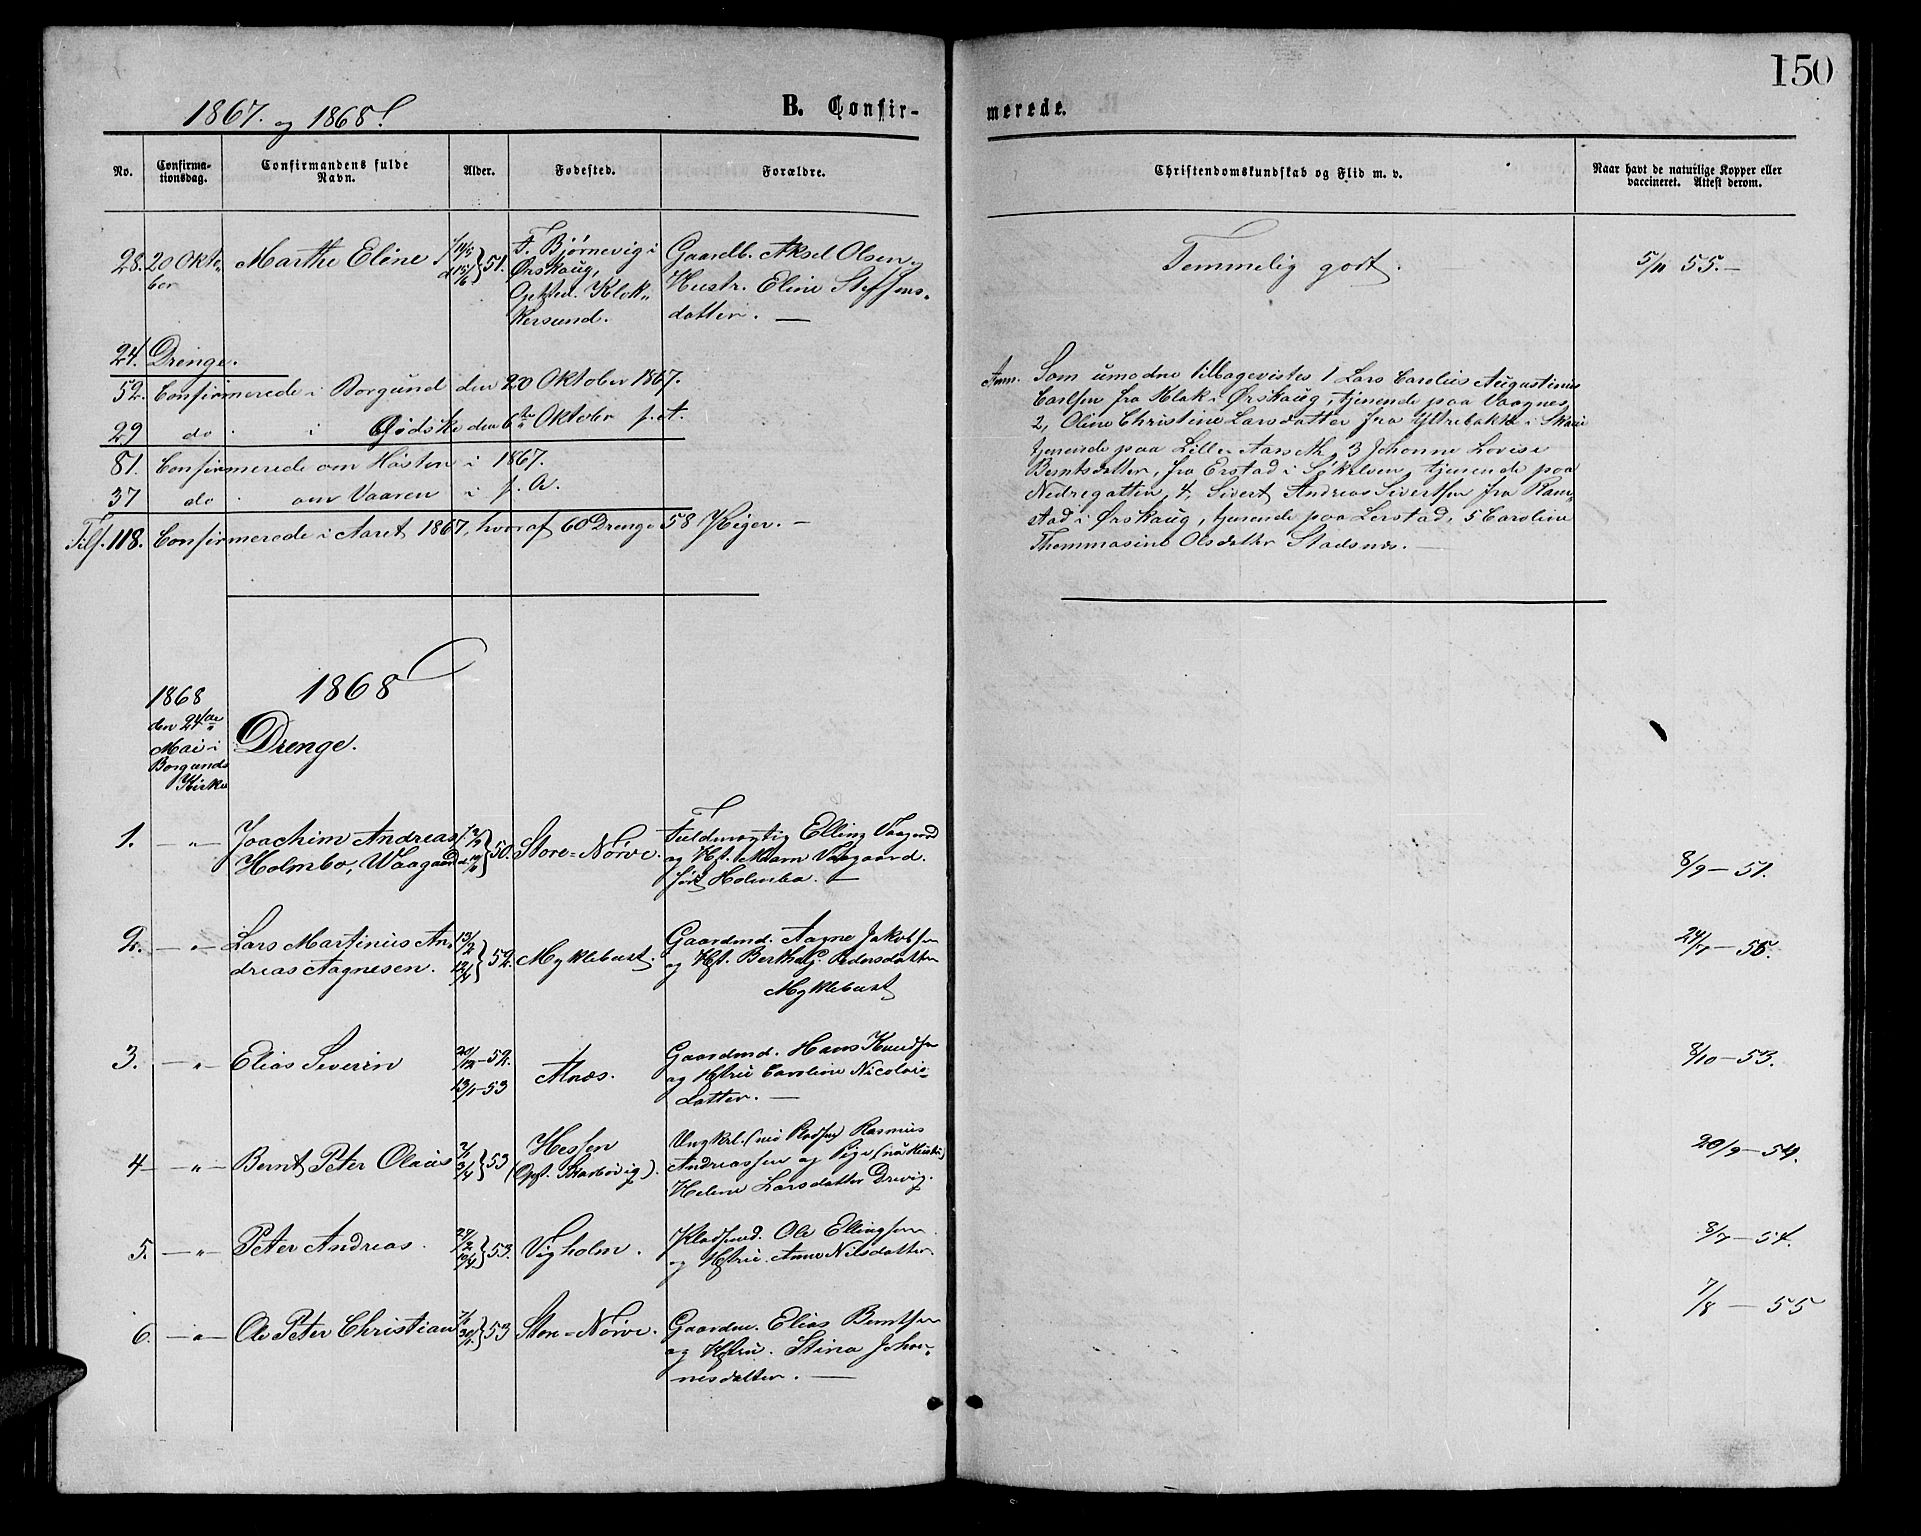 150
1867. og 1868.
B. Confir-
merede.
No.
Confirma-
tionsdag.
Confirmandens fulde
Navn.
Alder.
Fødested.
Forældre.
Christendomskundskab og Flid m. v.
Naar havt de naturlige Kopper eller
vaccineret. Attest derom.
28. 20 Okto-
ber
Marthe Eline
51.
F. Bjørnevig i
Ørskoug,
Opsted. Klok-
kersund.
Gaardb. Aksel Olsen,
Hustr. Eline Steffens-
datter. —
Temmelig godt.
5/11 55.—
24. Drenge.
52. Confirmerede i Borgund den 20 Oktober 1867.
29 do i Gidske den 6te Oktobr
81. Confirmerede om Høsten i 1867.
37 do om Vaaren i
Tils. 118. Confirmerede i Aaret 1867, hvoraf 60 Drenge 58 Piger. —
Anm. Som umodne tilbagevistes 1 Lars Carolus Augustinus
Carlsen fra Klok i Ørskoug, tjenende paa Vaagnes,
2, Oline Christine Larsdatter fra Yttrebakke i
tjenende paa Lille Aarseth, 3 Johanne Lovise
Berntsdatter, fra Erstad i Søkelven, tjenende paa
Nedregotten, 4, Sivert Andreas Sivertsen fra Ram-
stad i Ørskoug, tjenende paa Lerstad, 5 Caroline
Thommasine Olsdatter Stadsnes. —
1868
1868
den 24de
Mai i
Borgunds
Kirke
Drenge.
1. — „ —
Joachim Andreas
Holmbo, Waagaard
50.
Store-Nørve.
Elling Vaagaard
og Hst. Vaagaard.
født Holmbo. —
8/9 — 51.
2. — „ —
Lars Martinus An-
dreas Aagnesen.
13/2
12/4
52.
Myklebust.
Gaardmd. Aagne Jakobsen
og Hst. Berthe G. Pedersdatter
Myklebust
24/7 — 55.
3. — „ —
Elias Severin
20/12 — 52.
13/1 — 53
Alnæs.
Gaardmd. Hans Knudsen
og Hstru Caroline Nicolai-
datter. —
8/10 — 53.
4 — „ —
Bernt Peter Olaus
2/1
3/4
53
Hessen
(Opst. Skarbøvig).
Ungkrl. Rasmus
Andreassen og Pige (nu Hustru)
Helene Larsdatter Drevig.
20/9 — 54.
5. — „ —
Peter Andreas.
27/2
53.
Vigholm.
Pladsmd. Ole Ellingsen
og Hstru. Anne Nilsdatter.
8/7 — 54.
6. — „ —
Ole Peter Christian
53
Store-Nørve.
Gaardm. Elias Berntsen
og Hstru. Stina Johan-
nesdatter. —
7/8 — 55